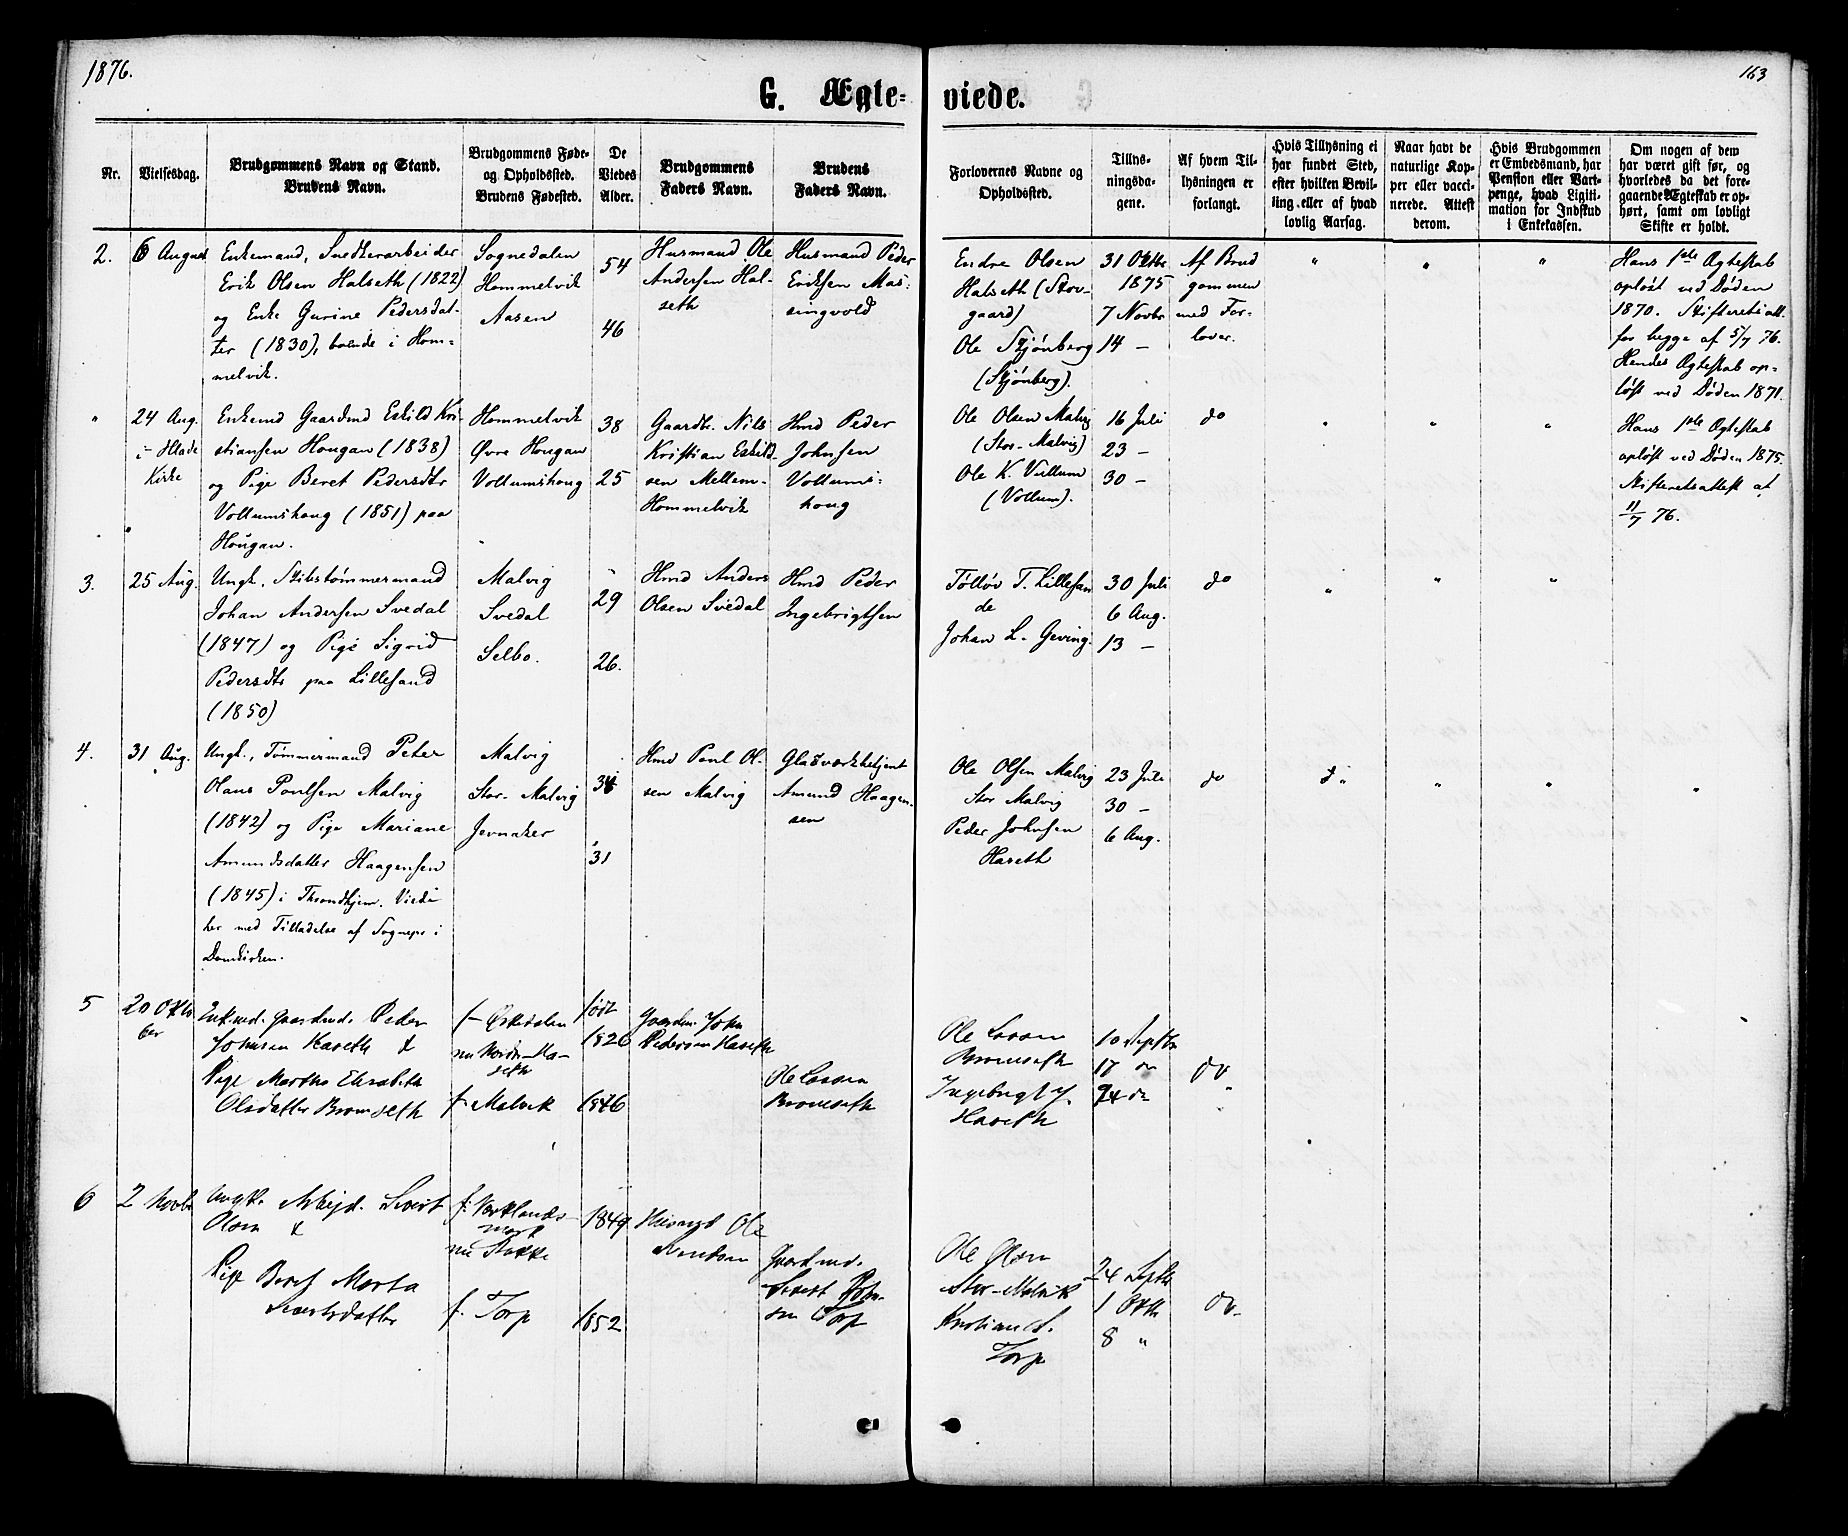 1876.
163
G. Ægte=
viede.
Nr.
Vielsesdag.
Brudgommens Navn og Stand.
Brudens Navn.
Brudgommens Føde-
og Opholdssted.
Brudens Fødested.
De
Viedes
Alder.
Brudgommens
Faders Navn.
Brudens
Faders Navn.
Forlovernes Navne og
Opholdssted.
Tillys-
ningsda-
gene.
Af hvem Til-
lysningen er
forlangt.
Hvis Tillysning ei
har fundet Sted,
efter hvilken Bevil-
ling eller af hvad
lovlig Aarsag.
Naar havt de
naturlige Kop-
per eller vacci-
nerede. Attest
derom.
Hvis Brudgommen
er Embedsmand, har
Pension eller Vart-
penge, hvad Ligiti-
mation for Indskud
i Enkekassen.
Om nogen af dem
har været gift før, og
hvorledes da det fore-
gaaende Ægteskab er op-
hørt, samt om lovligt
Skifte er holdt.
2.
6 August
Enkemand, Snedkerarbeider
Erik Olsen Halseth (1822)
og Enke Gurine Pedersdat-
ter (1830), boende i Hom-
melvik.
Sognedalen
Hommelvik
Aasen
54
46
Husmand Ole
Andersen Hal-
seth
Husmand Peder
Eriksen Mas-
singvold
Endre Olsen
Halseth (Stor-
gaard)
Ole Stjønberg
(Stjønberg).
31 Oktbr
1875
7 Novbr
14 —
Af Brud
gommen
med For-
lover.
"
"
"
Hans 1ste Ægteskab
opløst ved Døden
1870. Skifteretsatt.
for begge af 5/7 76.
Hendes Ægteskab op-
løst ved Døden 1871.
"
24 Aug.
i Hlade
Kirke
Enkemd Gaardmd Eskild Kri-
stiansen Hougan (1838)
og Pige Beret Pedersdtr
Vollumshoug (1851) paa
Hougan.
Hommelvik
Øvre Hougan
Vollumshoug
38
25
Gaardbr. Nils
Kristian Eskild-
sen Mellem-
Hommelvik
Hmd Peder
Johnsen
Vollums-
houg
Ole Olsen Malvig
(Stor-Malvig)
Ole K. Vullum
(Vollum).
16 Juli
23 —
30 —
do
"
"
"
Hans 1ste Ægteskab
opløst ved Døden 1875.
Skifteretsattest af
11/7 76.
3.
25 Aug.
Ungk. Skibstømmermand
Johan Andersen Svedal
(1847) og Pige Sigrid
Pedersdtr paa Lillesand
(1850)
Malvig
Svedal
Selbo.
29
26.
Hmd Anders
Olsen Svedal
Hmd Peder
Ingebrigtsen
Tølløv T. Lillesan
de
Johan L. Geving.
30 Juli
6 Aug.
13 —
do
"
"
"
4.
31 Aug.
Ungk., Tømmermand Peter
Olaus Poulsen Malvig
(1842) og Pige Mariane
Amundsdatter Haagensen
(1845) i Throndhjem. Viede
her med Tilladelse af Sognepr i
Domkirken.
Malvig
Stor-Malvig
Jevnaker
34
31
Hmd Poul Ol-
sen Malvig
Glasværksbetjent
Amund Haagen-
sen
Ole Olsen Malvig
Stor Malvig
Peder Johnsen
Haseth
23 Juli
30 —
6 Aug.
do
"
"
"
"
5
20 Okto
ber
Enkmd. Gaardmd. Peder
Johnsen Haseth &
Pige Martha Elisabeth
Olsdatter Bromseth
f. Ørkedalen
nu Nordre-Ha-
seth
f. Malvik
født
1826
1846
Gaardm. John
Pedersen Haseth
Ole Larsen
Bromseth
Ole Larsen
Bromseth
Ingebrigt J.
Haseth
10 Septbr
17 do
24 do
do
"
6
2 Novbr
Ungk. Arbejd. Sivert
Olsen &
Pige Beret Marta
Sivertsdatter
f.
nu
f. Torp
1849
1852
Husmd Ole
Gaardmd.
Sivert John-
sen Torp
Ole Olsen
Stor-Malvik
Kristian S.
Torp
24 Septbr
1 Oktb
8 "
do.